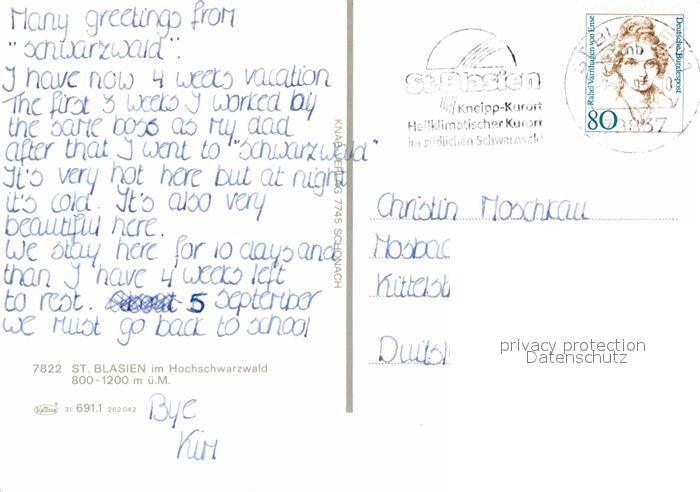 Many greetings from
"schwarzwald".
I have now 4 weeks vacation
The first 3 weeks I worked by
the same boss as my dad
after that I went to "schwarzwald"
It's very hot here but at night
it's cold. It's also very
beautiful here.
We stay here for 10 days and
than I have 4 weeks left
to rest. 5 september
we must go back to school
7822 ST. BLASIEN im Hochschwarzwald
800-1200 m ü.M.
31 691.1 262 042
Bye
Kim
7745 SCHONACH
St. Blasien
Kneipp-Kurort
Heilklimatischer Kurort
im südlichen Schwarzwald
Rahel Varnhagen von Ense
Deutsche Bundespost
80
Christin Moschkau
Mosbac
Küttelsb
Duitsl
privacy protection
Datenschutz